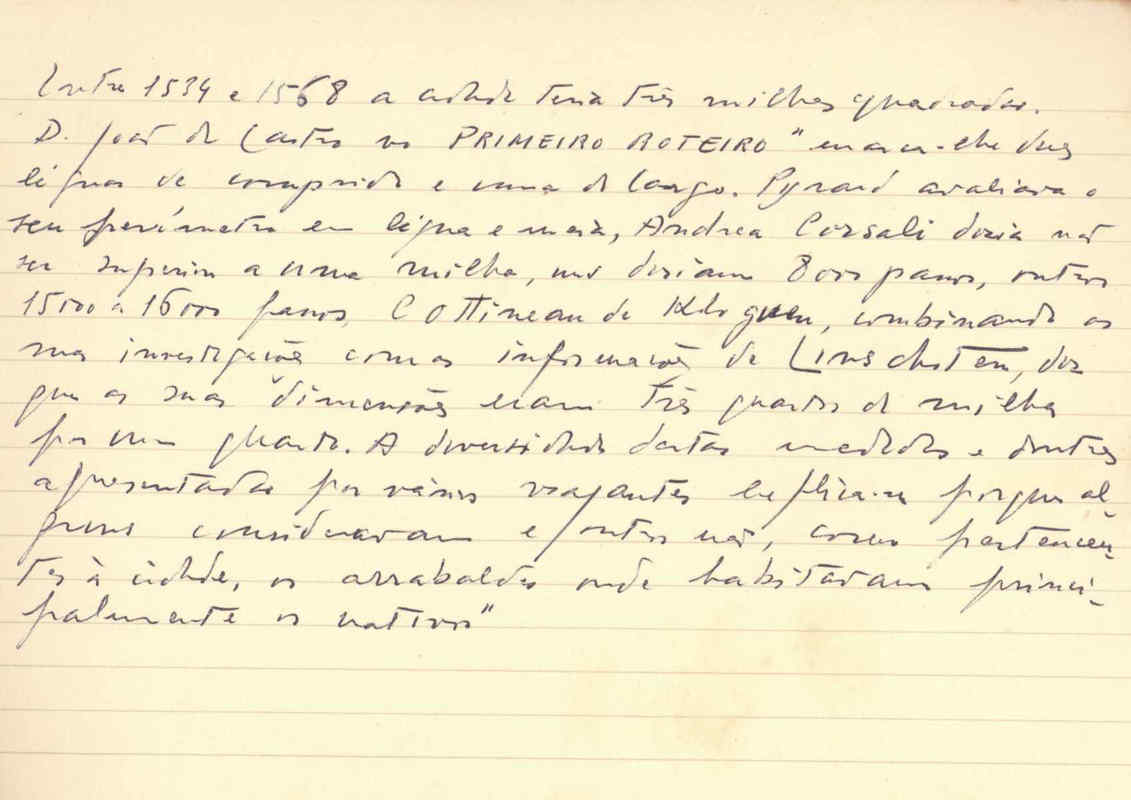 Entre 1534 e 1568 a cidade teria três milhas quadradas.
D. João de Castro no PRIMEIRO ROTEIRO "marca-lhe duas
léguas de comprido e uma de largo. Pyrard avaliava o
seu perímetro em légua e meia, Andrea Corsali dizia não
ser superior a uma milha, uns diziam 8000 passos, outros
15000 a 16000 passos, Cottineau de Kloguen, combinando as
suas investigações com as informações de Linschoten, diz
que as suas dimensões eram três quartos de milha
por um quarto. A diversidade destas medidas e doutras
apresentadas por vários viajantes explica-se porque al-
guns consideravam e outros não, como pertencen-
tes à cidade, os arrabaldes onde habitavam princi-
palmente os nativos"